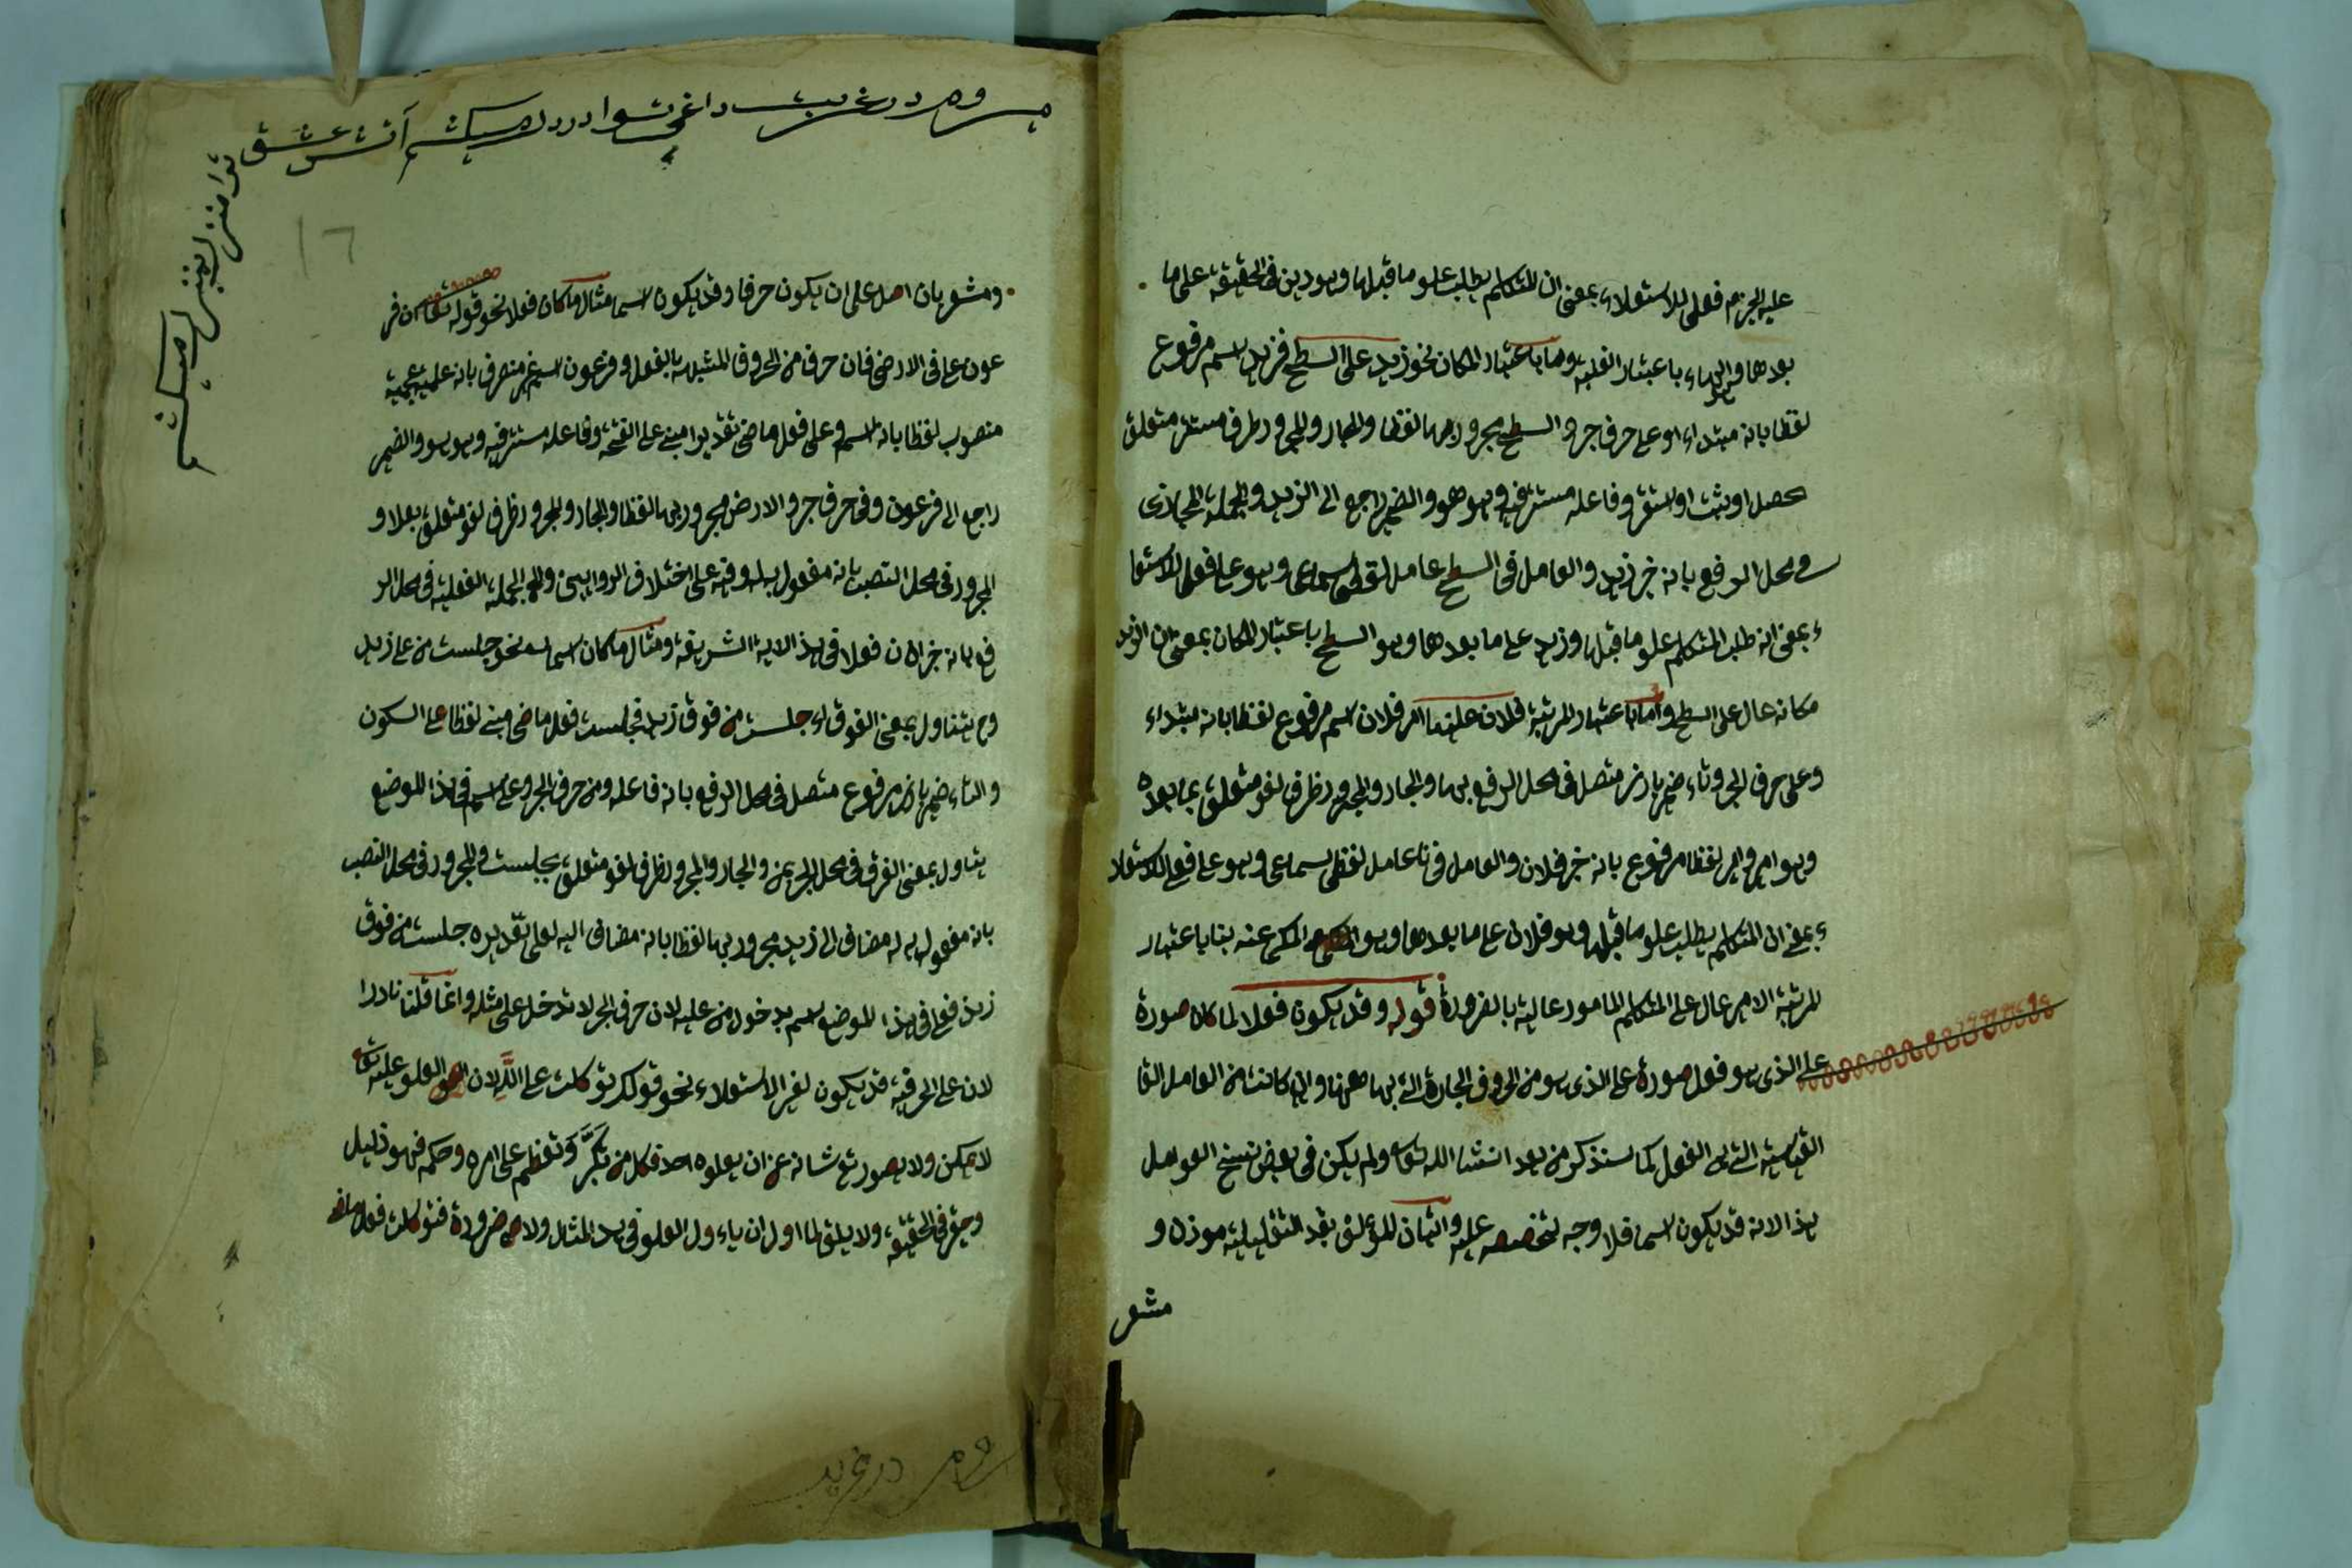 عليه الجزم فعلى للاستعلاء بمعنى ان المتكلم يطلب علو ما قبلها وهو دين فى الحقيقة على ما
بعدها وهو الهاء باعتبار الغلبة وما باعتبار المكان نحو زيد على السطح فزيد اسم مرفوع
لفظا بانه مبتداء او على حرف جر والسطح مجرور بها لفظا والجار والمجرور ظرف مستقر متعلق
حصل او ثبت او استقر وفاعله مستتر فيه وهو هو والضمير راجع الى الزيد والجملة
فى محل الرفع بانه خبر زيد والعامل فى السطح عامل لفظى سماعى وهو على فعلى للاستعلا
ء بمعنى انه طلب المتكلم علو ما قبلها وزيد على ما بعدها وهو السطح باعتبار المكان بمعنى ان الزيد
مكانه عال على السطح واما باعتبار المرتبة فلان علينا امر فلان اسم مرفوع لفظا بانه مبتداء
وعلى حرف الجر وناء ضمير بارز متصل فى محل الرفع بها والجار والمجرور ظرف لغو متعلق بما بعده
وهو امر وامر لفظا مرفوع بانه خبر فلان والعامل فى نا عامل لفظى سماعى وهو على فعلى للاستعلا
ء بمعنى ان المتكلم يطلب علو ما قبلها وهو فلان على ما بعدها وهو المكنى عنه بنا باعتبار
المرتبة الامر عال على المتكلم المامور عالية بالضرورة قوله وقد يكون فعلا لما كان صورة
على الذى هو فعل صورة على الذى هو من الحروف الجارة التى بها ههنا وان كانت من العامل القا
القياسية التى هى الفعل كما سنذكر من بعد انشا الله تعا ولم يكن فى بعض نسخ العوامل
هذا لانه قد يكون اسما فلا وجه لتخصيصه عليه واتيان المؤلف بقد التقليلية موذن و
مشعر
مروم در غربت داغى تو در دل ميكشم آتش عشق
ترا منزل بمنزل ميكشم
١٦
ومشعر بان اصل على ان يكون حرفا وقد يكون اسما مثال ما كان فعلا نحو قوله تعا ان فر
عون على فى الارض فان حرف من الحروف المشبهة بالفعل وفرعون اسم غير منصرف بانه علمية عجمية
منصوب لفظا بانه اسم وعلى فعل ماضى تقديرا مبنى على الفتحة وفاعله مستتر فيه وهو هو والضمير
راجع الى فرعون وفى حرف جر والارض مجرور بها لفظا والجار والمجرور ظرف لغو متعلق بعلا و
المجرور فى محل النصب بانه مفعول به او فيه على اختلاف الروايتين والجملة الفعلية فى محل الر
فع بانه خبر ان فعلا فى هذا الاية الشريفة ومثال ما كان اسما نحو جلست من على زيد
وح يتناول بمعنى الفوق اى جلست من فوق زيد فجلست فعل ماضى مبنى لفظا على السكون
والتاء ضمير بارز مرفوع متصل فى محل الرفع بانه فاعله ومن حرف الجر وعلى اسم فى هذا الموضع
يتناول بمعنى الفوق فى محل الجر بمن والجار والمجرور ظرف لغو متعلق بجلست والمجرور فى محل النصب
بانه مفعول به له مضاف الى زيد مجرور بها لفظا بانه مضاف اليه لعلى تقديره جلست من فوق
زيد فعلى فى هذا الموضع اسم بدخول من عليه لان حرف الجر لا تدخل على مثله وانما قلنا نادرا
لان على الحرفية قد يكون لغير الاستعلاء نحو قولك توكلت على الله لان العلو عليه تعا
لا يمكن ولا يصور تع شانه عن ان يعلوه احد فكل من تكبر وتعظم على امره وحكمه فهو ذليل
وحقير فى الحقيقة ولا يليق لما اول ان ياءول العلو فى هذ المثال ولا ضرورة فتوكلت فعل ماض
مروم در غربت